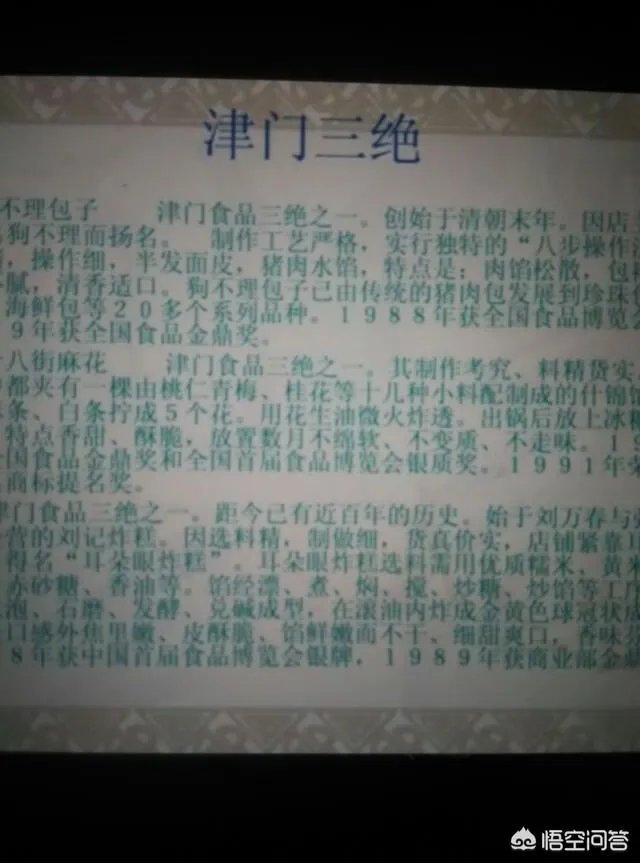 津门三绝
不理包子 津门食品三绝之一。创始于清朝末年。因店
狗不理而扬名。 制作工艺严格，实行独特的“八步操作
，操作细，半发面皮，猪肉水馅，特点是；肉馅松散，包
腻，清香适口。狗不理包子已由传统的猪肉包发展到珍珠
海鲜包等20多个系列品种。1988年获全国食品博览会
9年获全国食品金鼎奖。
八街麻花 津门食品三绝之一。其制作考究、料精货实
都夹有一棵由桃仁青梅、桂花等十几种小料配制成的什锦
条、白条拧成5个花。用花生油微火炸透。出锅后放上冰糖
特点香甜、酥脆，放置数月不绵软、不变质、不走味。1
国食品金鼎奖和全国首届食品博览会银质奖。1991年荣
商标提名奖。
津门食品三绝之一。距今已有近百年的历史。始于刘万春与
营的刘记炸糕。因选料精，制做细，货真价实，店铺紧靠耳
得名“耳朵眼炸糕”。耳朵眼炸糕选料需用优质糯米、黄米
赤砂糖、香油等。馅经漂、煮、焖、搅、炒糖、炒馅等工序
泡、石磨、发酵、兑碱成型，在滚油内炸成金黄色球冠状
口感外焦里嫩、皮酥脆、馅鲜嫩而不干、细甜爽口，香味
8年获中国首届食品博览会银牌，1989年获商业部金鼎
悟空问答